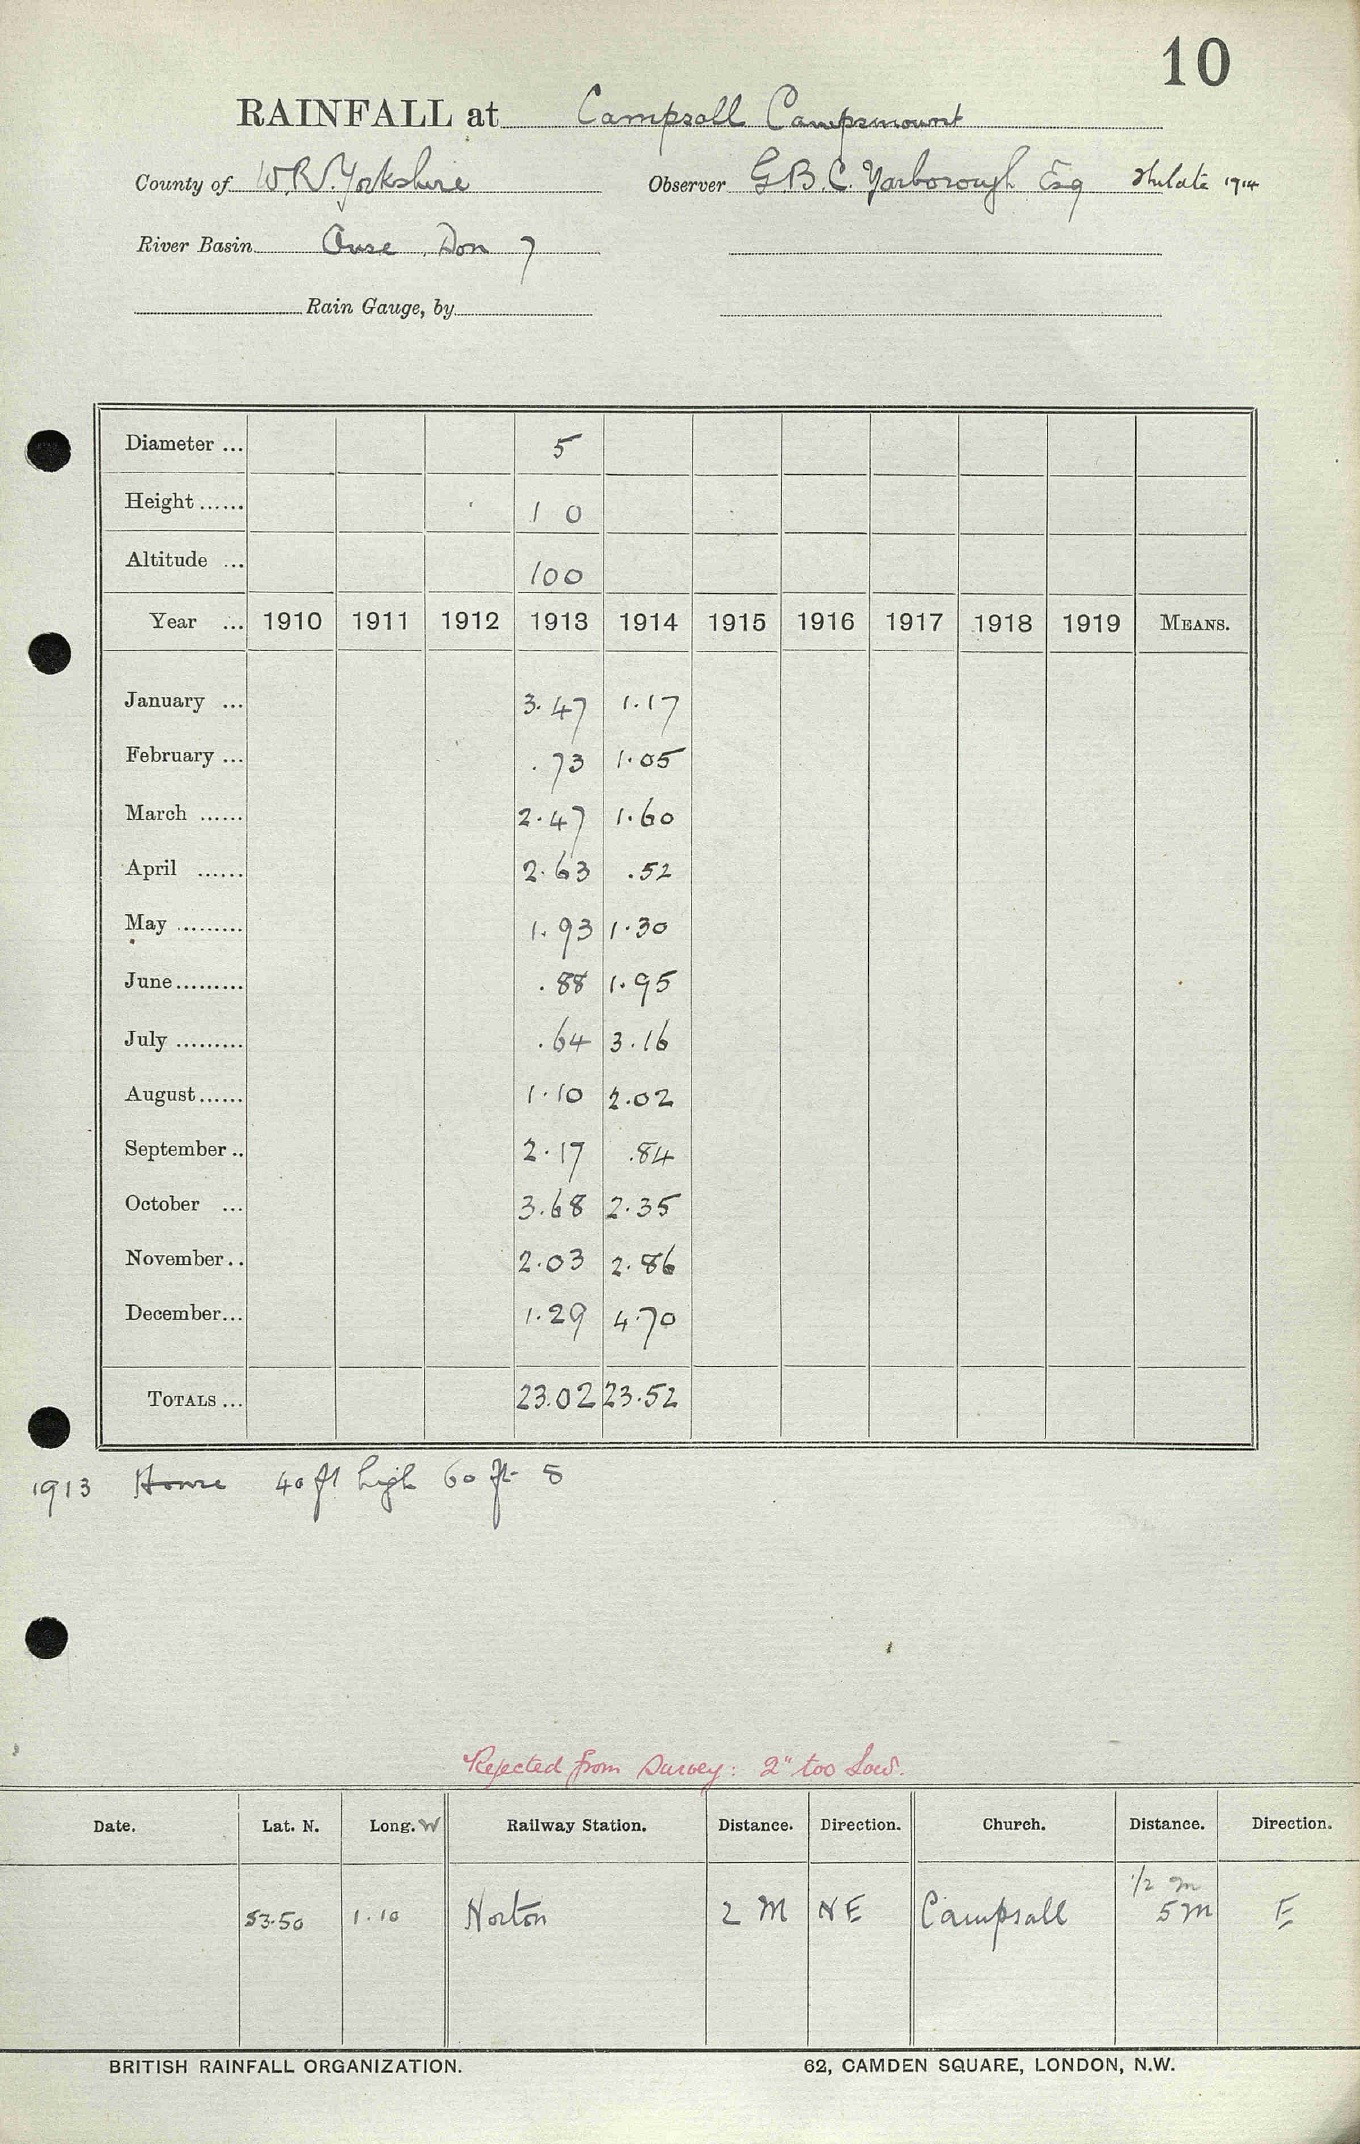 10
RAINFALL at Campsall Campsmount
County of W.R. Yorkshire Observer G.B.C. Yarborough Esq 1914
River Basin Ouse, Don 7
Rain Gauge, by
Diameter ... 5
Height ...... 1 0
Altitude ... 100
Year ... 1910 1911 1912 1913 1914 1915 1916 1917 1918 1919 MEANS.
January ... 3.47 1.17
February ... .73 1.05
March ...... 2.47 1.60
April ...... 2.63 .52
May ......... 1.93 1.30
June ......... .88 1.95
July ......... .64 3.16
August ...... 1.10 2.02
September .. 2.17 .84
October ... 3.68 2.35
November .. 2.03 2.86
December ... 1.29 4.70
TOTALS ... 23.02 23.52
1913 House 40 ft high 60 ft S
Rejected from Survey: 2" too low.
Date. Lat. N. Long. W Railway Station. Distance. Direction. Church. Distance. Direction.
1/2 m
53.50 1.10 Norton 2 M NE Campsall 5 m E
BRITISH RAINFALL ORGANIZATION. 62, CAMDEN SQUARE, LONDON, N.W.